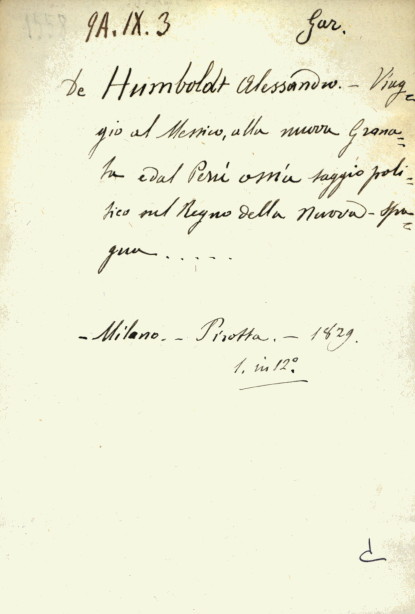 9A.IX.3 Gar.
De Humboldt Alessandro. – Viag=
gio al Messico, alla nuova Grana=
ta e dal Perú ossia saggio poli=
tico sul Regno della Nuova-Spa=
gna.....
– Milano. – Pirotta. – 1829.
1. in 12.º